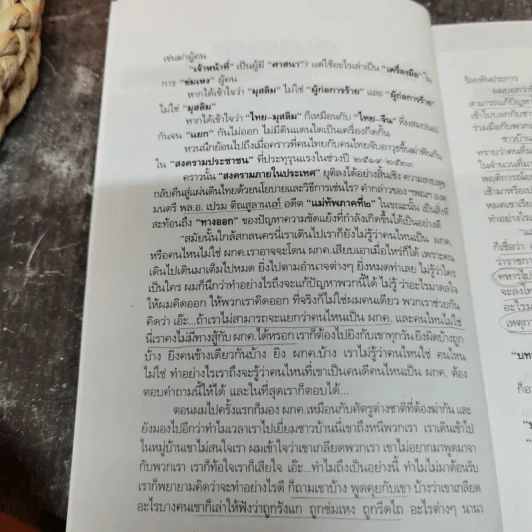 เข่นฆ่าผู้คน
"เจ้าหน้าที่" เป็นผู้มี "ศาสนา"? แต่ใช้อะไรเล่าเป็น "เครื่องมือ" ใน
การ "ข่มเหง" ผู้คน
หากได้เข้าใจว่า "มุสลิม" ไม่ใช่ "ผู้ก่อการร้าย" และ "ผู้ก่อการร้าย"
ไม่ใช่ "มุสลิม"
หากได้เข้าใจว่า "ไทย-มุสลิม" ก็เหมือนกับ "ไทย-จีน" ที่ผสมปนเป
กันจน "แยก" กันไม่ออก ไม่มีดินแดนใดเป็นเครื่องกีดกัน
หวนนึกย้อนไปถึงเมื่อคราวที่คนไทยกับคนไทยจับอาวุธขึ้นฆ่าฟันกัน
ใน "สงครามประชาชน" ที่ประทุรุนแรงในช่วงปี ๒๕๑๑-๒๕๒๓
คราวนั้น "สงครามภายในประเทศ" ยุติลงได้อย่างสิ้นเชิง ความสงบสุข
กลับคืนสู่แผ่นดินไทยด้วยนโยบายและวิธีการเช่นไร? คำกล่าวของ ฯพณฯ องค
มนตรี พล.อ. เปรม ติณสูลานนท์ อดีต "แม่ทัพภาคที่๒" ในขณะนั้น เป็นสิ่งที่
สะท้อนถึง "ทางออก" ของปัญหาความขัดแย้งที่กำลังเกิดขึ้นได้เป็นอย่างดี
"สมัยนั้นใกล้สกลนครนี่เราเดินไปเราก็ยังไม่รู้ว่าคนไหนเป็น ผกค.
หรือคนไหนไม่ใช่ ผกค.เราอาจจะโดน ผกค.เสียบเอาเมื่อไหร่ก็ได้ เพราะคน
เดินไปเดินมาเต็มไปหมด ยิ่งไปตามอำเภอต่างๆ ยิ่งหมดท่าเลย ไม่รู้ว่าใคร
เป็นใคร ผมก็นึกว่าทำอย่างไรถึงจะแก้ปัญหาพวกนี้ได้ ไม่รู้ ว่าอะไรมาดลใจ
ให้ผมคิดออก ให้พวกเราคิดออก ที่จริงก็ไม่ใช่ผมคนเดียว พวกเราช่วยกัน
คิดว่า เอ๊ะ...ถ้าเราไม่สามารถจะแยกว่าคนไหนเป็น ผกค. และคนไหนไม่ใช่
นี่เราคงไม่มีทางสู้กับ ผกค.ได้หรอก เราก็ต้องไปยิงกับเขาทุกวันยิงผิดบ้างถูก
บ้าง ยิงคนข้างเดียวกันบ้าง ยิง ผกค.บ้าง เราไม่รู้ว่าคนไหนใช่ คนไหน
ไม่ใช่ ทำอย่างไรเราถึงจะรู้ว่าคนไหนที่เขาเป็นคนดีคนไหนเป็น ผกค. ต้อง
ตอบคำถามนี้ให้ได้ และในที่สุดเราก็ตอบได้...
ตอนผมไปครั้งแรกก็มอง ผกค.เหมือนกับศัตรูต่างชาติที่ต้องฆ่ากัน และ
ยังมองไปอีกว่าทำไมเวลาเราไปเยี่ยมชาวบ้านนี่เขาถึงหนีพวกเรา เราเดินเข้าไป
ในหมู่บ้านเขาไม่สนใจเรา ผมเข้าใจว่าเขาเกลียดพวกเรา เขาไม่อยากมาพูดมาจา
กับพวกเรา เราก็ท้อใจเราก็เสียใจ เอ๊ะ...ทำไมถึงเป็นอย่างนี้ ทำไมไม่มาต้อนรับ
เราก็พยายามคิดว่าจะทำอย่างไรดี ก็ถามเขาบ้าง พูดคุยกับเขา บ้างว่าเขาเกลียด
อะไรบางคนเขาก็เล่าให้ฟังว่าถูกรังแก ถูกข่มเหง ถูกรีดไถ อะไรต่างๆ นานา